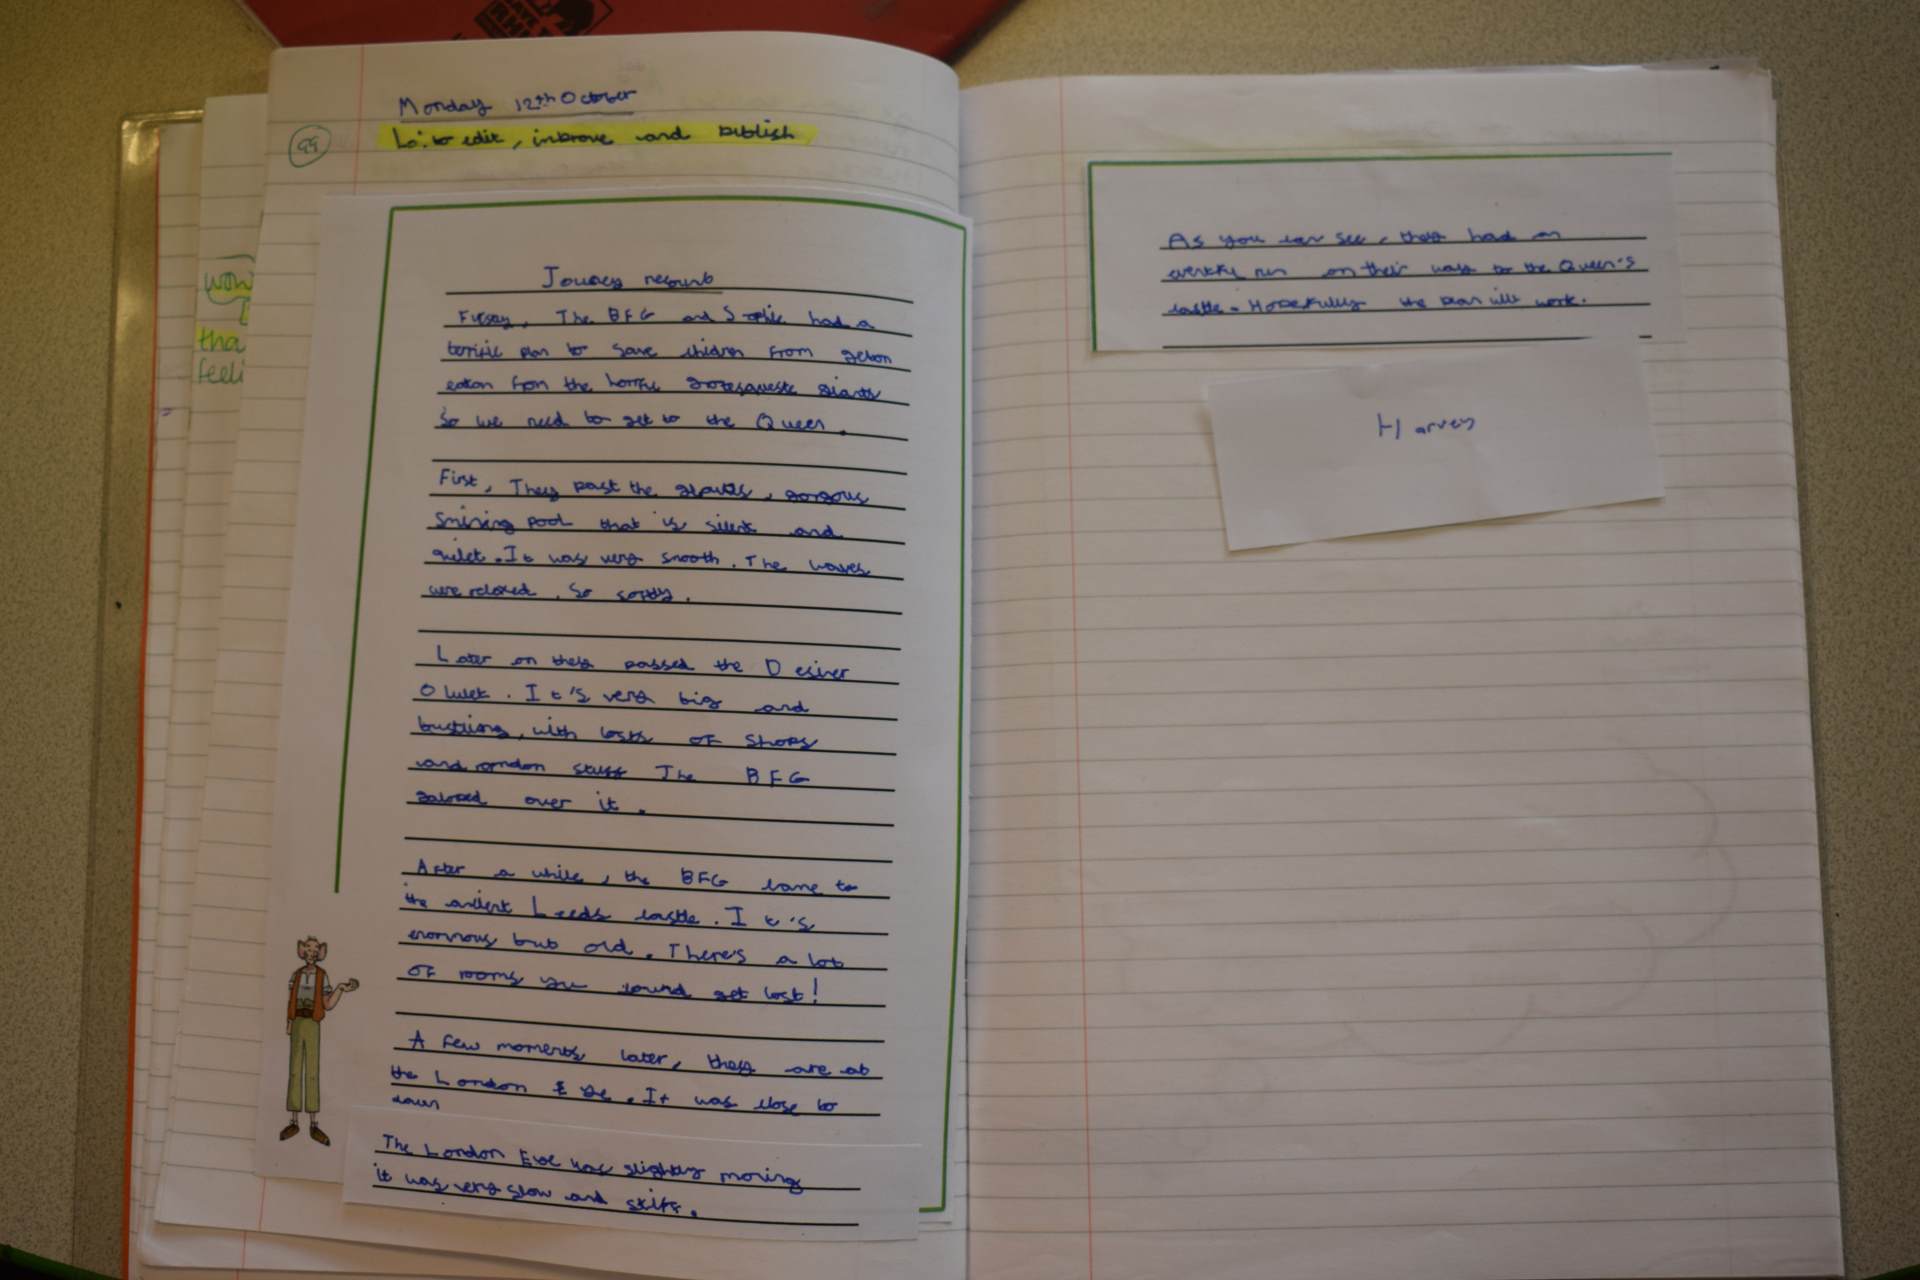 Monday 12th October
L.: to edit, improve and publish
99
wow
tha
feeli
Journey recount
The BFG and Sophie had a
terrific plan to save from
eaten from the giants
So we need to get to the Queen.
First, They past the
pool that is silent and
quiet. It was very smooth. The waves
were relaxed. So softly.
Later on they passed the Desiner
Outlet. It's very big and
bustling, with of shops
and stuff The BFG
galoped over it.
After a while, the BFG came to
the Leeds castle. It's
enormous but old. There's a lot
of rooms you could get lost!
A few moments later, they are at
the London Eye. It was close to
dawn
The London Eye was slightly moving
it was very slow and
As you can see, they had an
run on their way to the Queen's
castle. Hopefully the plan will work.
Harvey